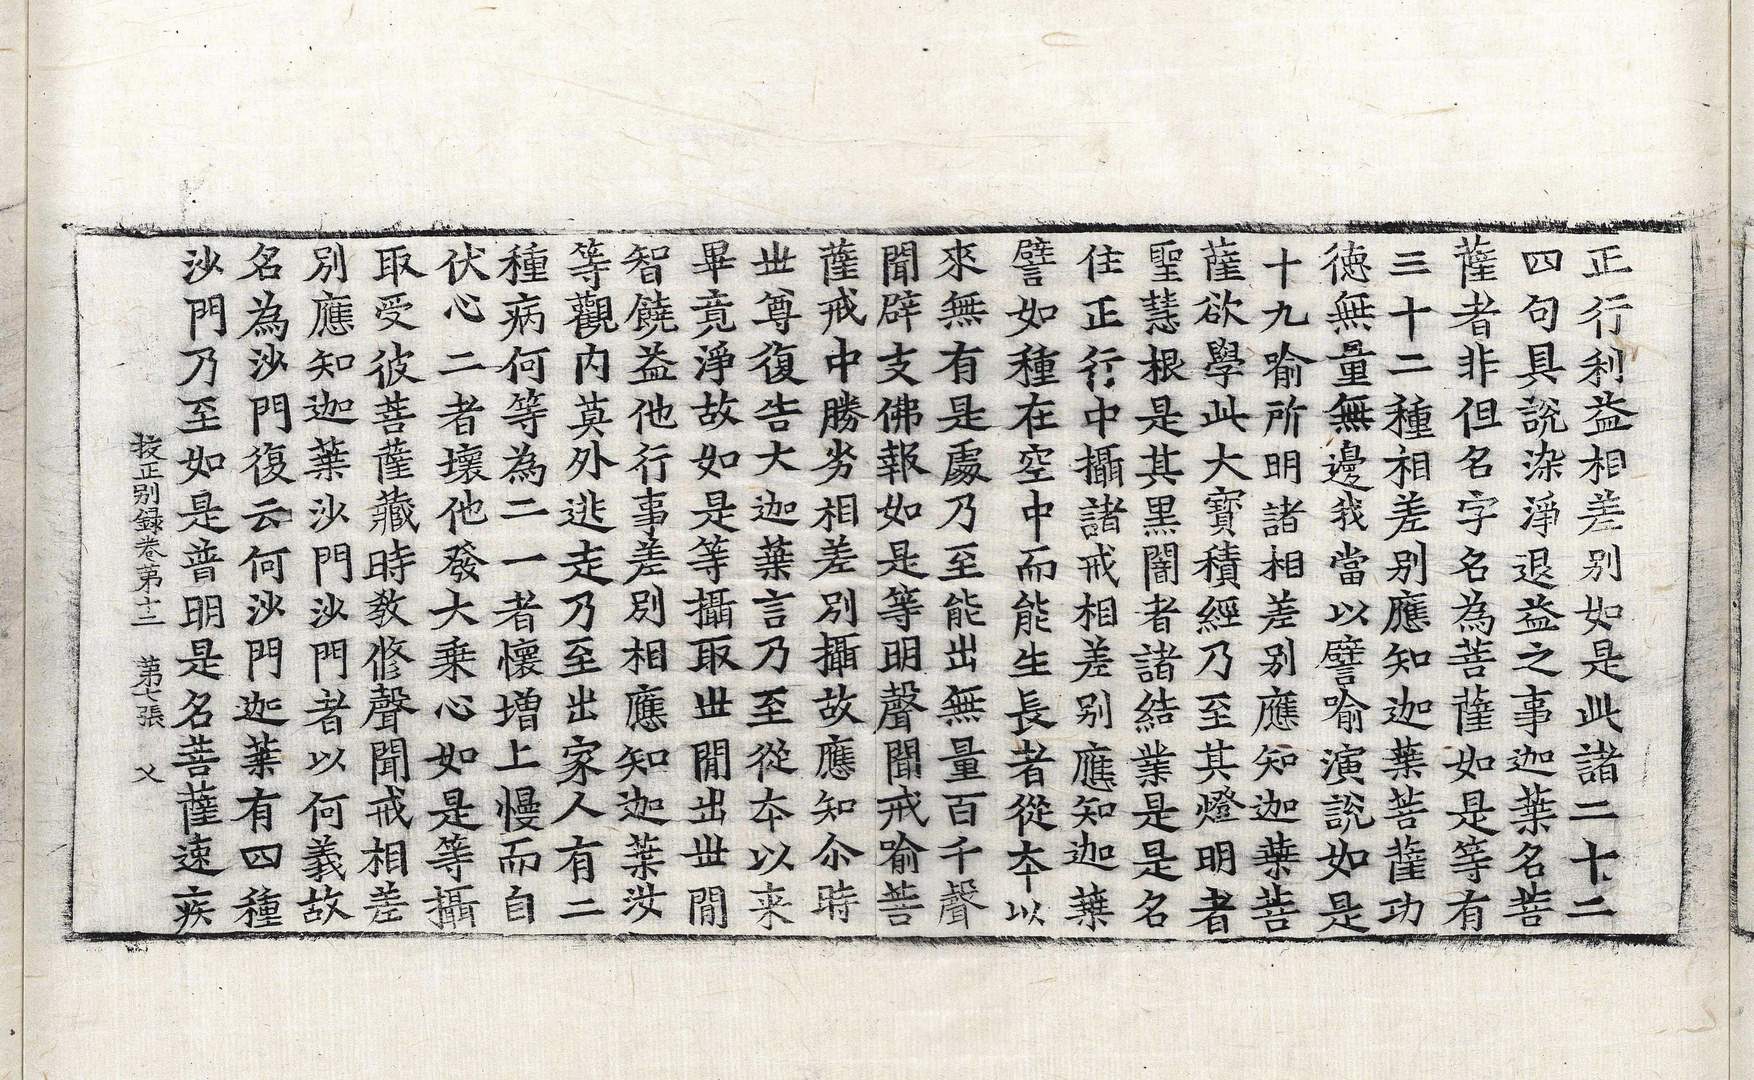 正行利益相差别如是此諸二十二
四句具說染淨退益之事迦葉名菩
薩者非但名字名為菩薩如是等有
三十二種相差别應知迦葉菩薩功
德無量無邊我當以譬喻演說如是
十九喻所明諸相差别應知迦葉菩
薩欲學此大寳積經乃至其燈明者
聖慧根是其黑闇者諸結業是是名
住正行中攝諸戒相差别應知迦葉
譬如種在空中而能生長者從夲以
來無有是處乃至能出無量百千聲
聞辟支佛報如是等明聲聞戒喻菩
薩戒中勝劣相差别攝故應知尒時
世尊復告大迦葉言乃至從夲以来
畢竟淨故如是等攝取世間出世間
智饒益他行事差别相應知迦葉汝
等觀内莫外逃走乃至出家人有二
種病何等為二一者懷增上慢而自
伏心二者壞他發大乘心如是等攝
取受彼菩薩藏時教修聲聞戒相差
别應知迦葉沙門沙門者以何義故
名為沙門復云何沙門迦葉有四種
沙門乃至如是普明是名菩薩速疾
挍正别録卷第十二　第七張　父